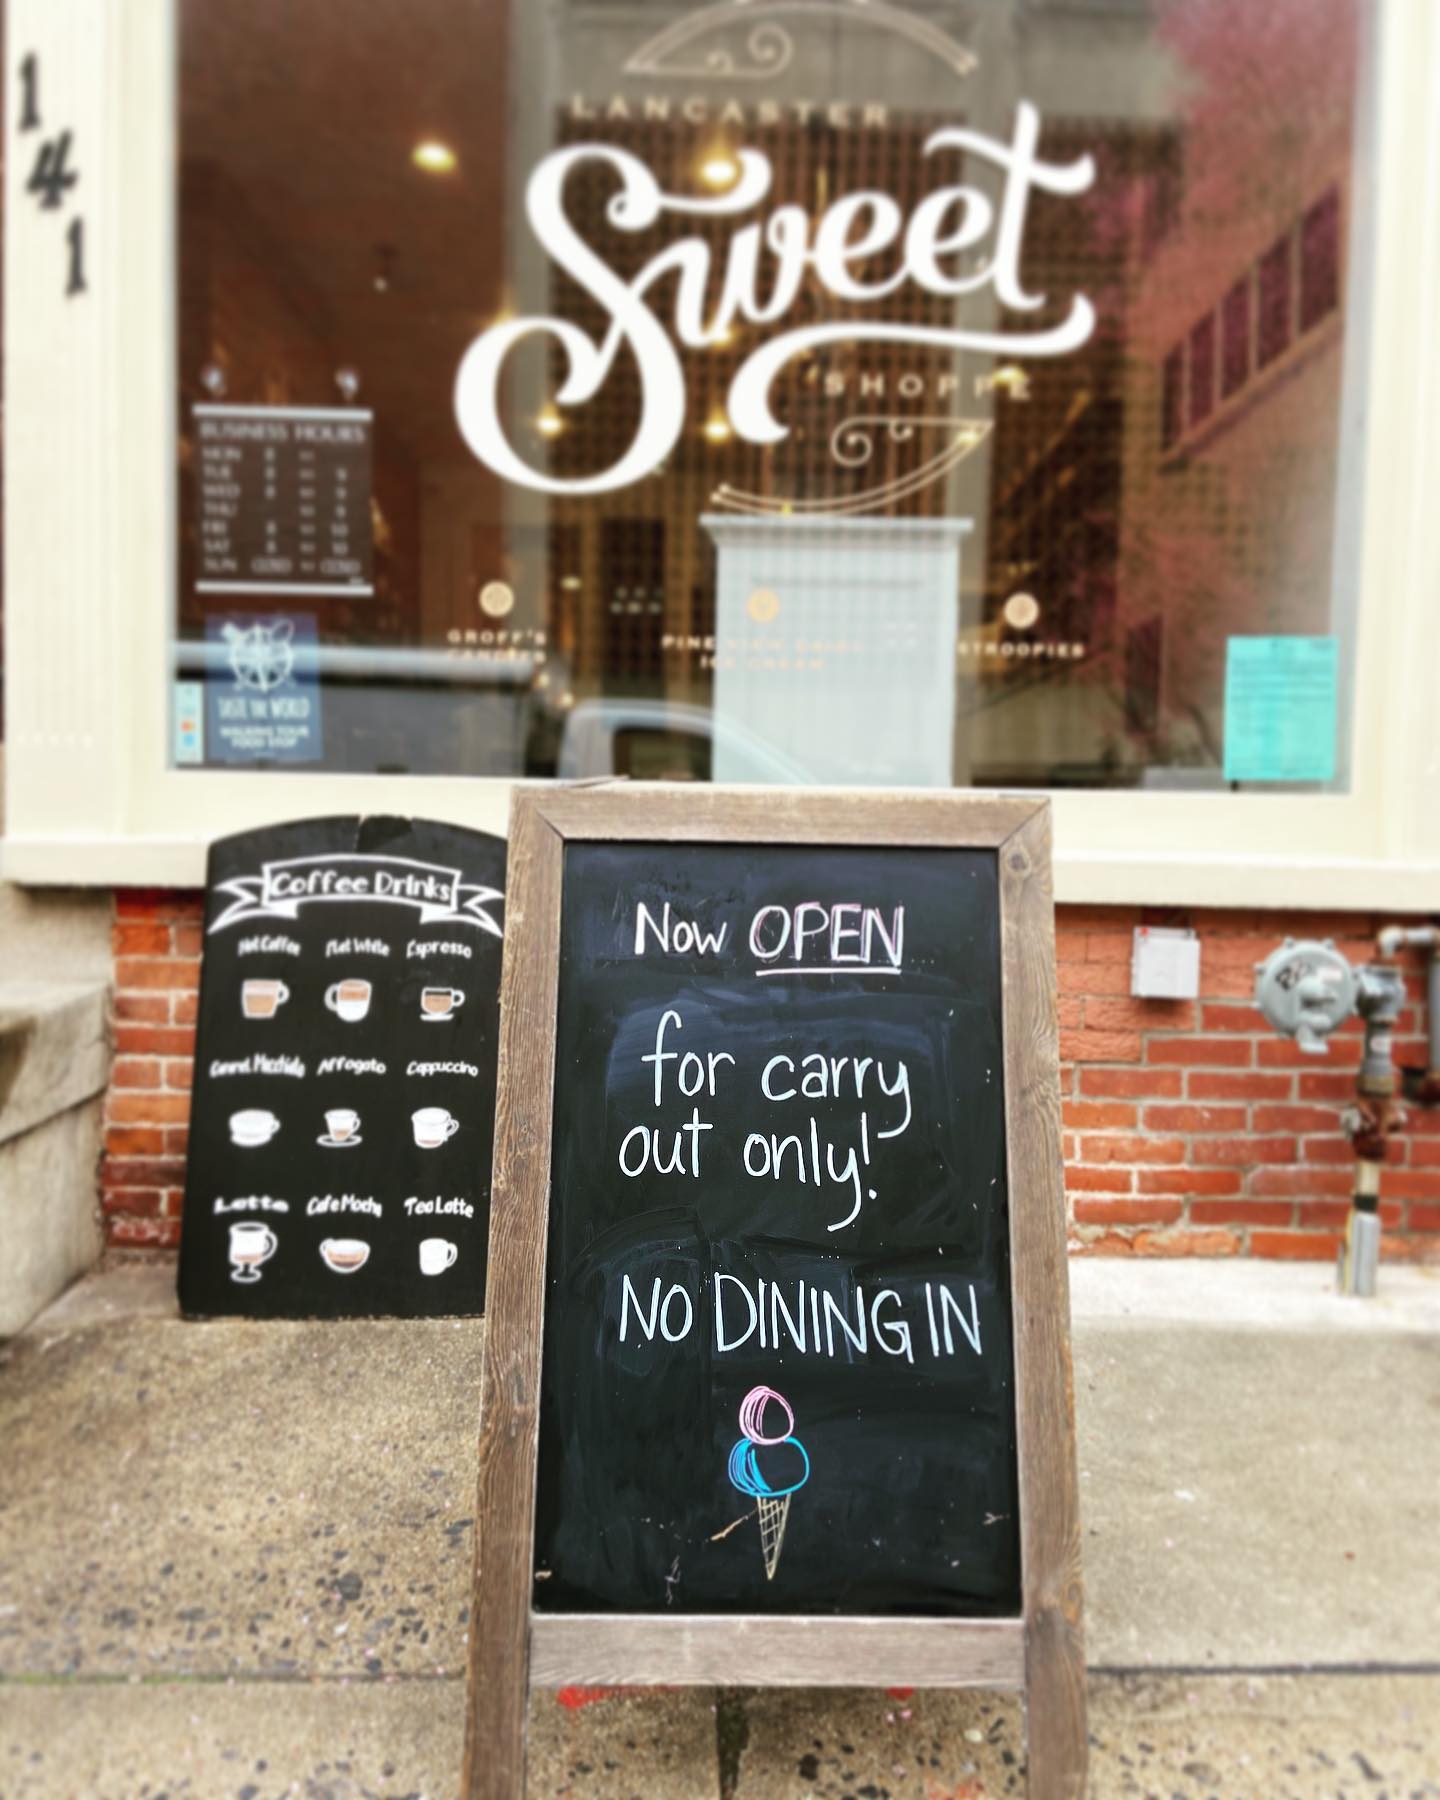 141
LANCASTER
Sweet
SHOPPE
BUSINESS HOURS
MON 8
TUE 8
WED 8
THU
FRI
SAT
SUN CLOSED CLOSED
GROFF'S
CANDIES
PINE VIEW DAIRY
ICE CREAM
STROOPIES
TASTE THE WORLD
WALKING TOUR
FOOD STOP
Coffee Drinks
Hot Coffee Flat White Espresso
Caramel Macchiato Affogato Cappuccino
Latte Cafe Mocha Tea Latte
Now OPEN
for carry
out only!
NO DINING IN